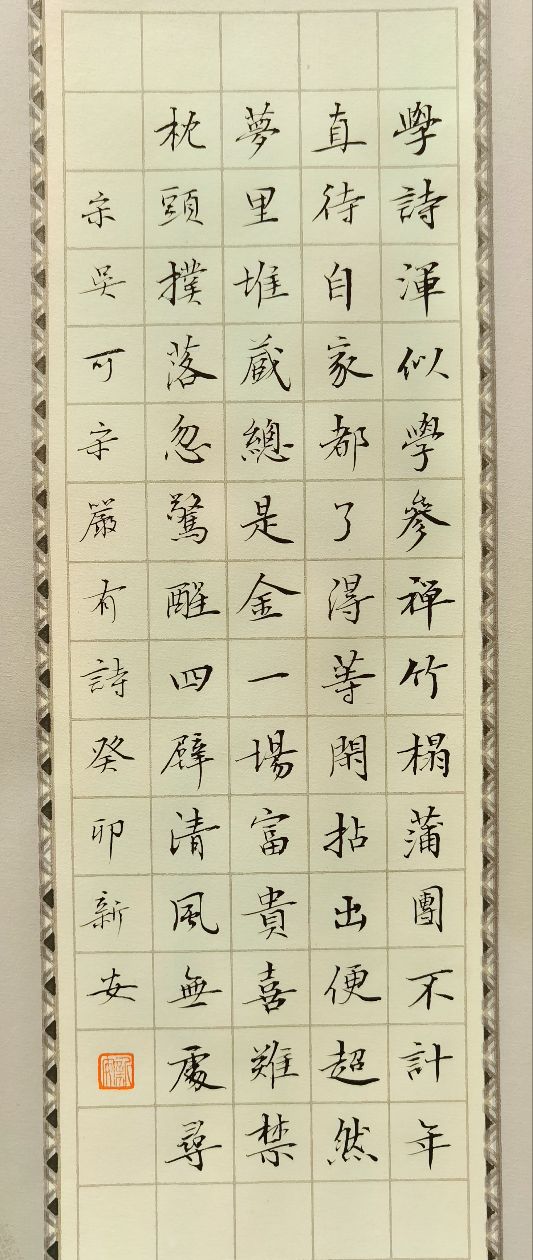 學詩渾似學參禪竹榻蒲團不計年
直待自家都了得等閑拈出便超然
夢里堆藏總是金一場富貴喜難禁
枕頭撲落忽驚醒四壁清風無處尋
宗吳可宗嚴有詩癸卯新安